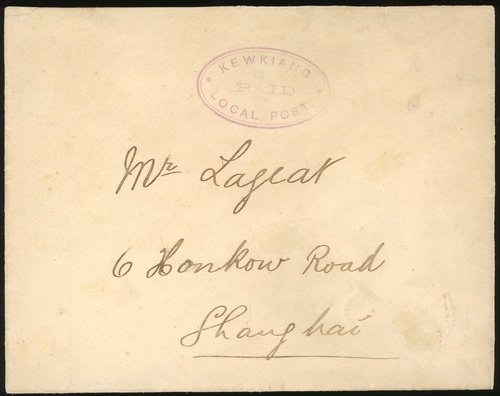 KEWKIANG
PAID
LOCAL POST.
Mr Lageat
6 Honkow Road
Shanghai